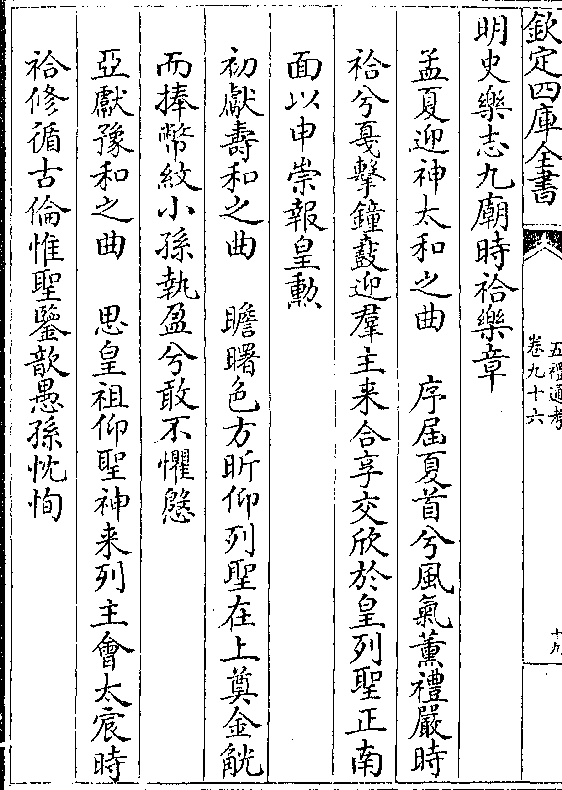 欽定四庫全書
五禮通考
卷九十六
十九
明史樂志九廟時祫樂章
孟夏迎神太和之曲　序屆夏首兮風氣薰禮嚴時
祫兮戛擊鐘鼔迎羣主来合享交欣於皇列聖正南
面以申崇報皇勲
初獻壽和之曲　瞻曙色方昕仰列聖在上奠金觥
而捧幣紋小孫執盈兮敢不懼慇
亞獻豫和之曲　思皇祖仰聖神来列主會太宸時
祫修循古倫惟聖鑒歆愚孫忱恂